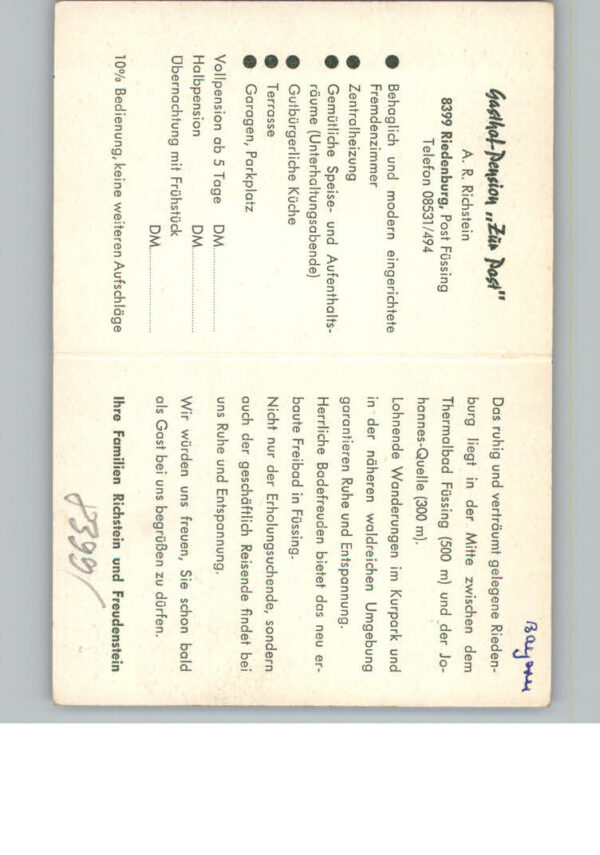 Gasthof-Pension „Zur Post"
A. R. Richstein
8399 Riedenburg, Post Füssing
Telefon 08531/494
● Behaglich und modern eingerichtete
Fremdenzimmer
● Zentralheizung
● Gemütliche Speise- und Aufenthalts-
räume (Unterhaltungsabende)
● Gutbürgerliche Küche
● Terrasse
● Garagen, Parkplatz
Vollpension ab 5 Tage DM
Halbpension DM
Übernachtung mit Frühstück
DM
10% Bedienung, keine weiteren Aufschläge
Bayern
Das ruhig und verträumt gelegene Rieden-
burg liegt in der Mitte zwischen dem
Thermalbad Füssing (500 m) und der Jo-
hannes-Quelle (300 m).
Lohnende Wanderungen im Kurpark und
in der näheren waldreichen Umgebung
garantieren Ruhe und Entspannung.
Herrliche Badefreuden bietet das neu er-
baute Freibad in Füssing.
Nicht nur der Erholungsuchende, sondern
auch der geschäftlich Reisende findet bei
uns Ruhe und Entspannung.
Wir würden uns freuen, Sie schon bald
als Gast bei uns begrüßen zu dürfen.
Ihre Familien Richstein und Freudenstein
8399/